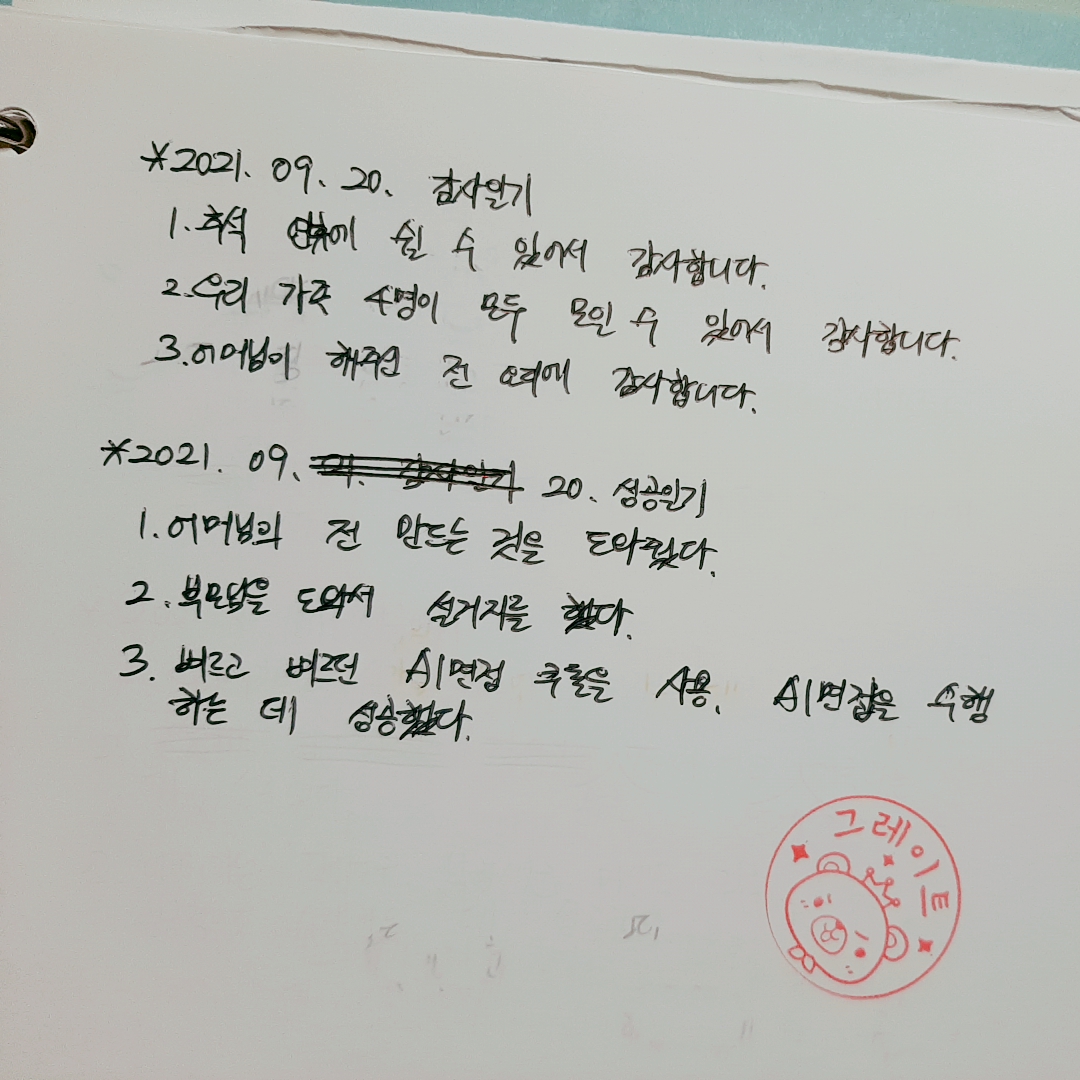 *2021. 09. 20. 감사일기
1. 추석 연휴에 쉴 수 있어서 감사합니다.
2. 우리 가족 4명이 모두 모일 수 있어서 감사합니다.
3. 어머님이 해주신 전 요리에 감사합니다.
*2021. 09. 20. 성공일기
1. 어머님의 전 만드는 것을 도와줬다.
2. 부모님을 도와서 설거지를 했다.
3. 벼르고 벼르던 AI면접 쿠폰을 사용, AI면접을 수행
하는 데 성공했다.
그레이트